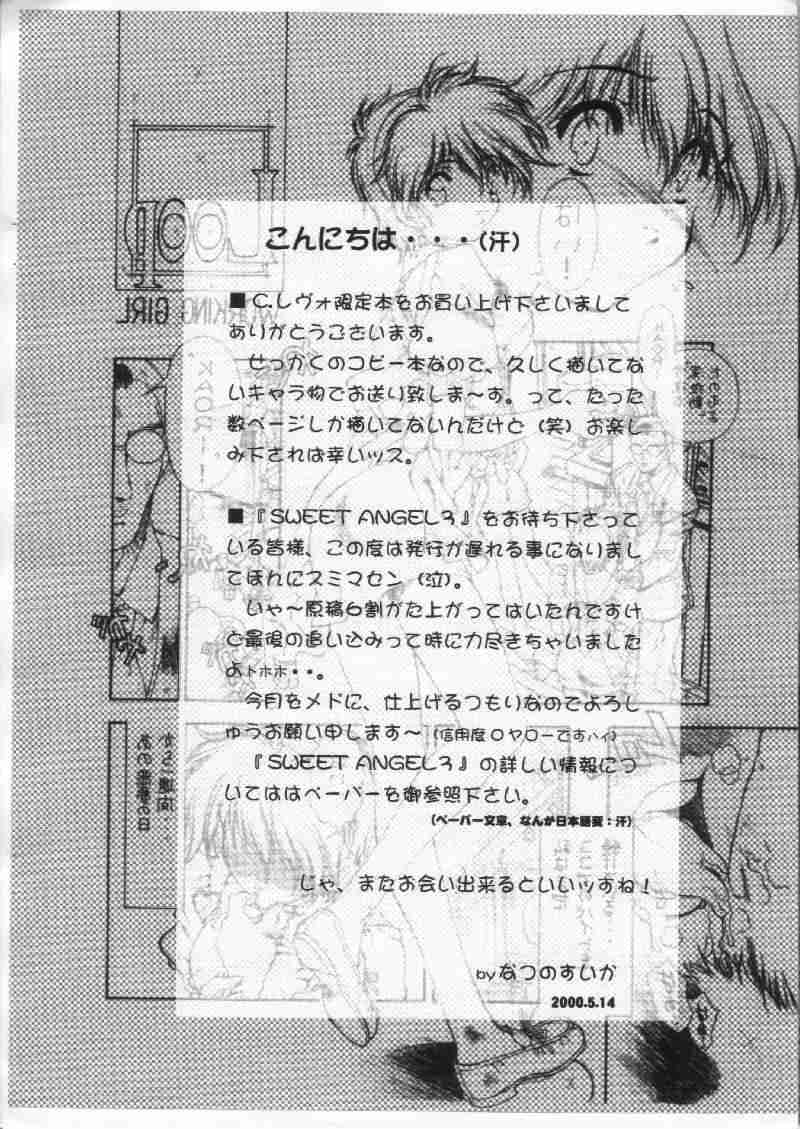 こんにちは・・・(汗)
■C.レヴォ限定本をお買い上げ下さいまして
ありがとうございます。
せっかくのコピー本なので、久しく描いてな
いキャラ物でお送り致しま〜す。って、たった
数ページしか描いてないんだけど（笑）お楽し
み下されば幸いッス。
■『SWEET ANGEL3』をお待ち下さって
いる皆様、この度は発行が遅れる事になりまし
てほんにスミマセン（泣）。
いゃ〜原稿6割がた上がってはいたんですけ
ど最後の追い込みって時に力尽きちゃいました
よトホホ・・。
今月をメドに、仕上げるつもりなのでよろし
ゅうお願い申します〜（信用度0ヤローですハイ）
『SWEET ANGEL3』の詳しい情報につ
いてははペーパーを御参照下さい。
（ペーパー文章、なんか日本語変：汗）
じゃ、またお会い出来るといいッすね！
by なつのすいか
2000.5.14
はい！
WORKING GIRL